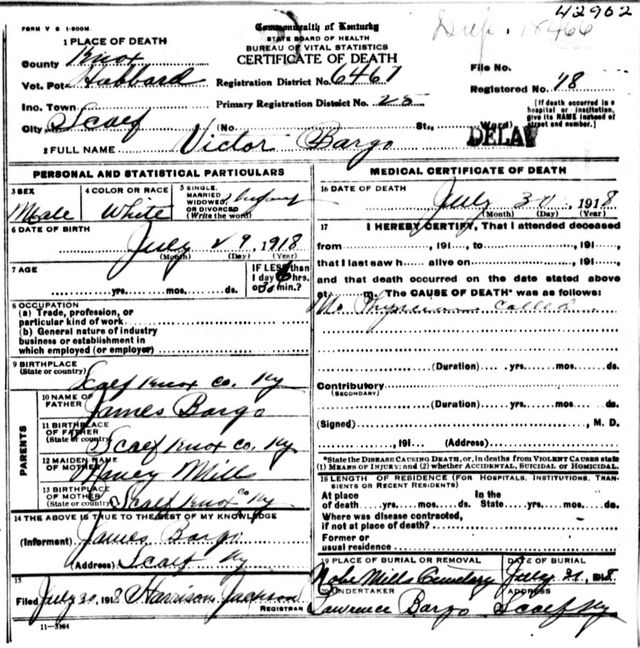 42962
Dup. 18466
FORM V S 1-500M.
Commonwealth of Kentucky
STATE BOARD OF HEALTH
BUREAU OF VITAL STATISTICS
CERTIFICATE OF DEATH
1 PLACE OF DEATH
County Knox
Vot. Pct. Hubbard
Inc. Town
City Scalf
Registration District No. 6467
Primary Registration District No. 25
File No.
Registered No. 18
[If death occurred in a hospital or institution, give its NAME instead of street and number.]
(No. St., Ward)
DELAY
2 FULL NAME Victor Bargo
PERSONAL AND STATISTICAL PARTICULARS
3 SEX
Male
4 COLOR OR RACE
White
5 SINGLE, MARRIED WIDOWED, OR DIVORCED
(Write the word)
6 DATE OF BIRTH
July 29, 1918
(Month) (Day) (Year)
7 AGE
yrs. mos. ds.
IF LESS than
1 day 6 hrs.
or 30 min.?
8 OCCUPATION
(a) Trade, profession, or
particular kind of work
(b) General nature of industry
business or establishment in
which employed (or employer)
9 BIRTHPLACE
(State or country) Scalf Knox Co. Ky
PARENTS
10 NAME OF FATHER James Bargo
11 BIRTHPLACE OF FATHER
(State or country) Scalf Knox Co. Ky
12 MAIDEN NAME OF MOTHER Nancy Mills
13 BIRTHPLACE OF MOTHER
(State or country) Scalf Knox Co Ky
14 THE ABOVE IS TRUE TO THE BEST OF MY KNOWLEDGE
(Informant) James Bargo
(Address) Scalf Ky
15
Filed July 30, 1918 Harrison Jackson
REGISTRAR
11-3184
MEDICAL CERTIFICATE OF DEATH
16 DATE OF DEATH
July 30, 1918
(Month) (Day) (Year)
17 I HEREBY CERTIFY, That I attended deceased
from , 191 , to , 191 ,
that I last saw h alive on , 191 ,
and that death occurred on the date stated above
at m. The CAUSE OF DEATH* was as follows:
No Physician called
(Duration) yrs. mos. ds.
Contributory
(SECONDARY)
(Duration) yrs. mos. ds.
(Signed) , M. D.
, 191 (Address)
*State the DISEASE CAUSING DEATH, or, in deaths from VIOLENT CAUSES state
(1) MEANS OF INJURY; and (2) whether ACCIDENTAL, SUICIDAL or HOMICIDAL.
18 LENGTH OF RESIDENCE (FOR HOSPITALS, INSTITUTIONS, TRANSIENTS OR RECENT RESIDENTS)
At place In the
of death yrs. mos. ds. State yrs. mos. ds.
Where was disease contracted,
if not at place of death?
Former or
usual residence
19 PLACE OF BURIAL OR REMOVAL
Mills Cemetery
DATE OF BURIAL
July 31, 1918
20 UNDERTAKER
Lawrence Bargo
ADDRESS
Scalf Ky.